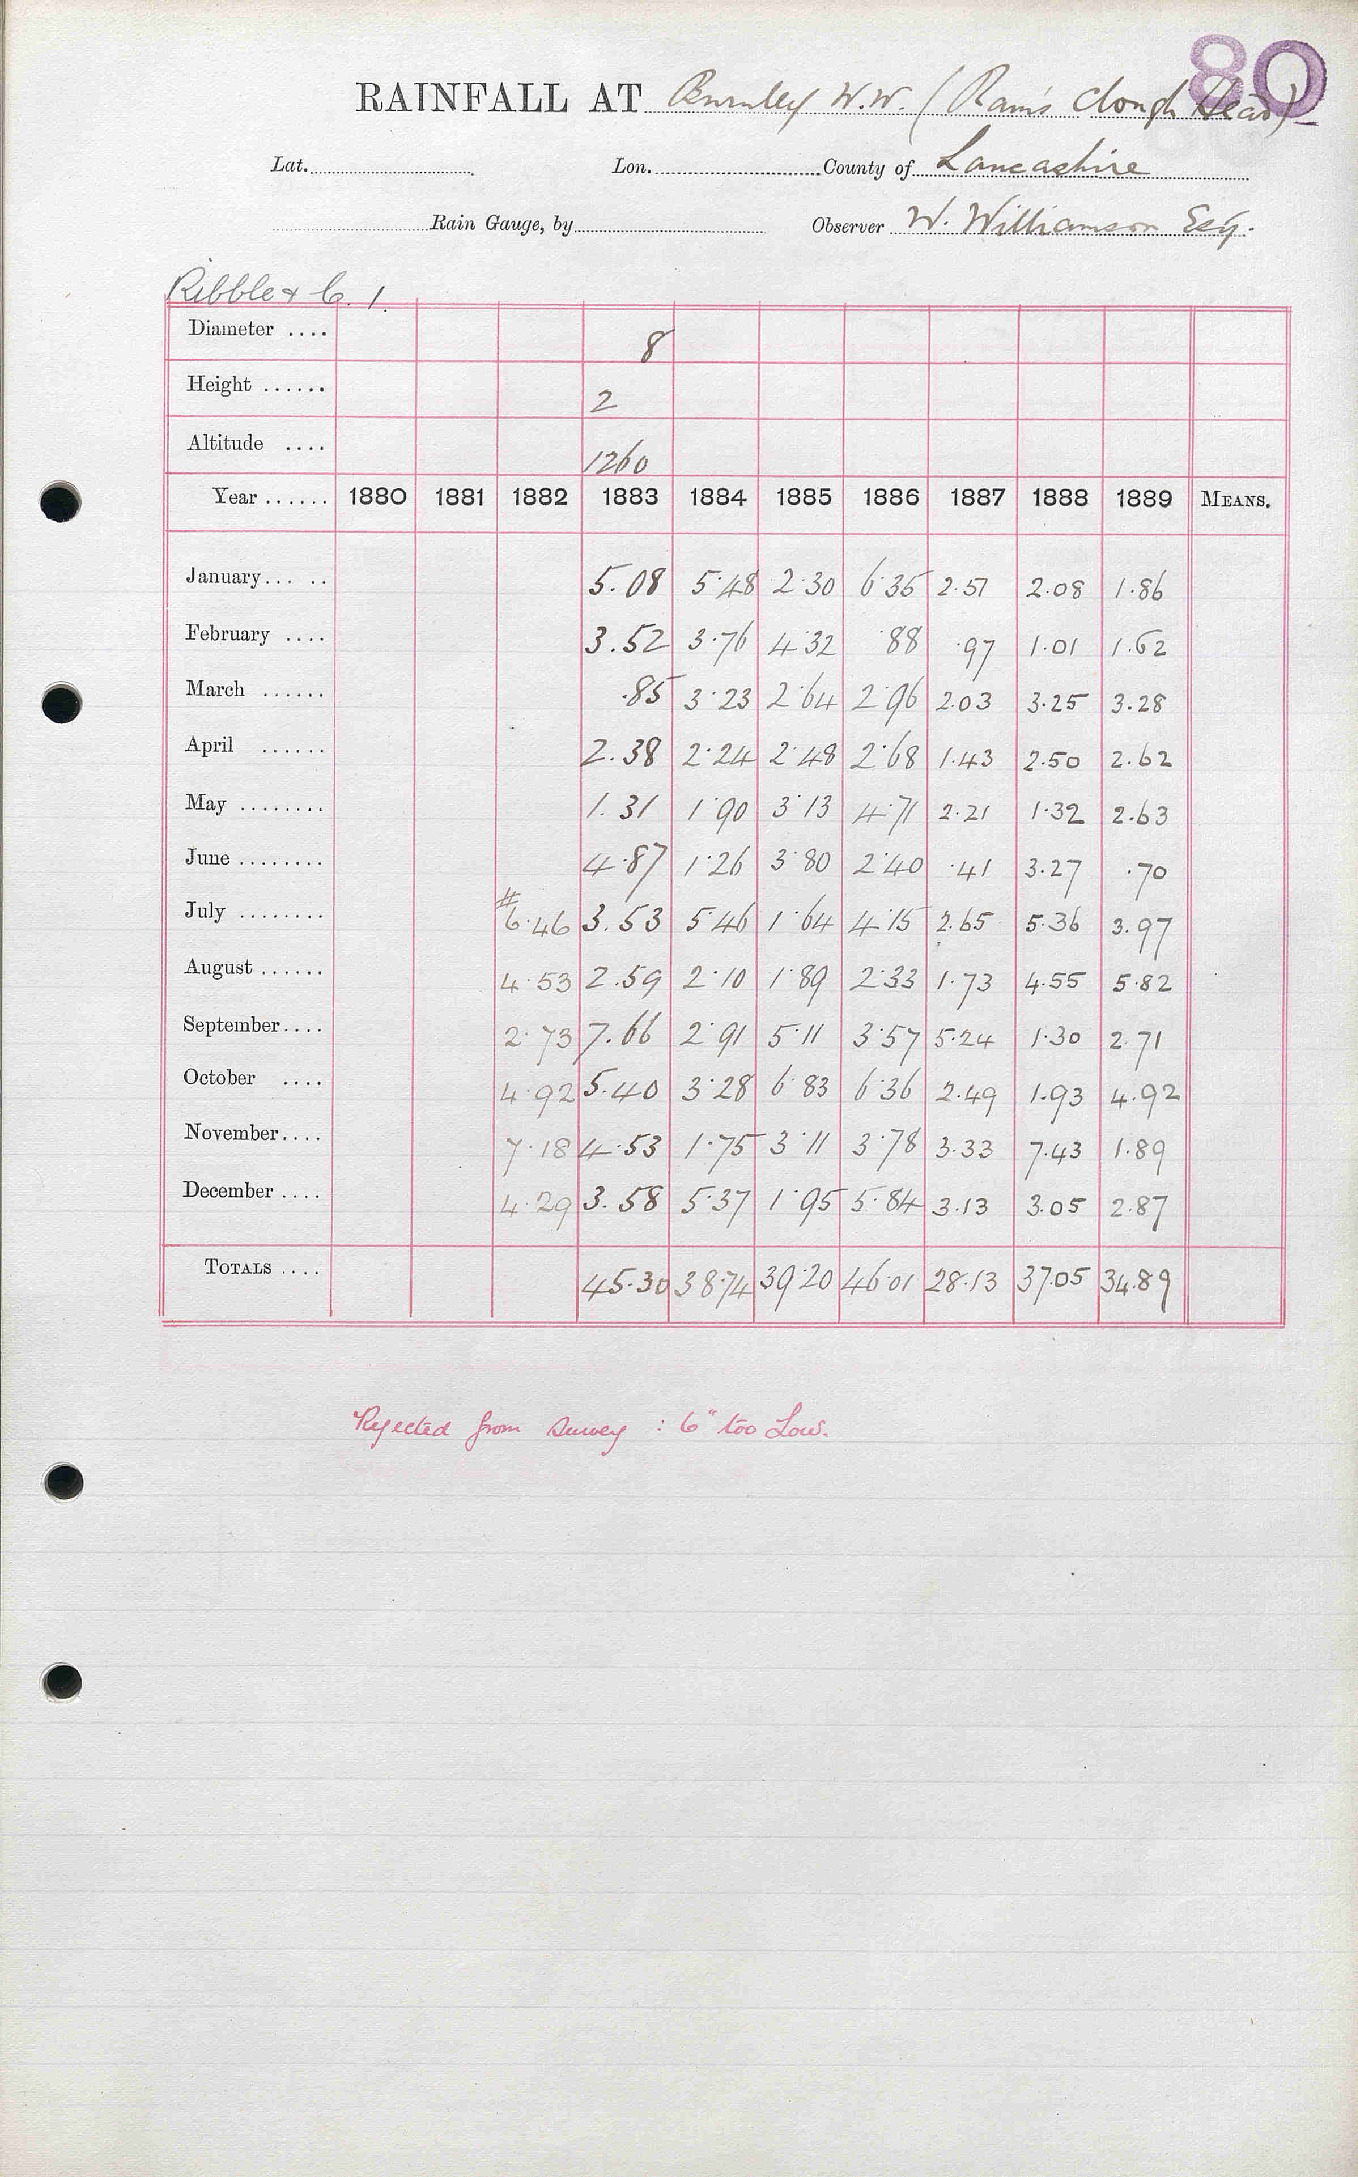 80
RAINFALL AT Burnley W.W. (Ram's Clough Head)
Lat. Lon. County of Lancashire
Rain Gauge, by Observer W. Williamson Esq.
Ribble & C. 1.
Diameter .... 8
Height ...... 2
Altitude .... 1260
Year ...... 1880 1881 1882 1883 1884 1885 1886 1887 1888 1889 MEANS.
January... .. 5.08 5.48 2.30 6.35 2.57 2.08 1.86
February .... 3.52 3.76 4.32 .88 .97 1.01 1.62
March ...... .85 3.23 2.64 2.96 2.03 3.25 3.28
April ...... 2.38 2.24 2.48 2.68 1.43 2.50 2.62
May ........ 1.31 1.90 3.13 4.71 2.21 1.32 2.63
June ........ 4.87 1.26 3.80 2.40 .41 3.27 .70
July ........ # 6.46 3.53 5.46 1.64 4.15 2.65 5.36 3.97
August ...... 4.53 2.59 2.10 1.89 2.33 1.73 4.55 5.82
September.... 2.73 7.66 2.91 5.11 3.57 5.24 1.30 2.71
October .... 4.92 5.40 3.28 6.83 6.36 2.49 1.93 4.92
November.... 7.18 4.53 1.75 3.11 3.78 3.33 7.43 1.89
December .... 4.29 3.58 5.37 1.95 5.84 3.13 3.05 2.87
TOTALS .... 45.30 38.74 39.20 46.01 28.13 37.05 34.89
Rejected from survey : 6" too Low.